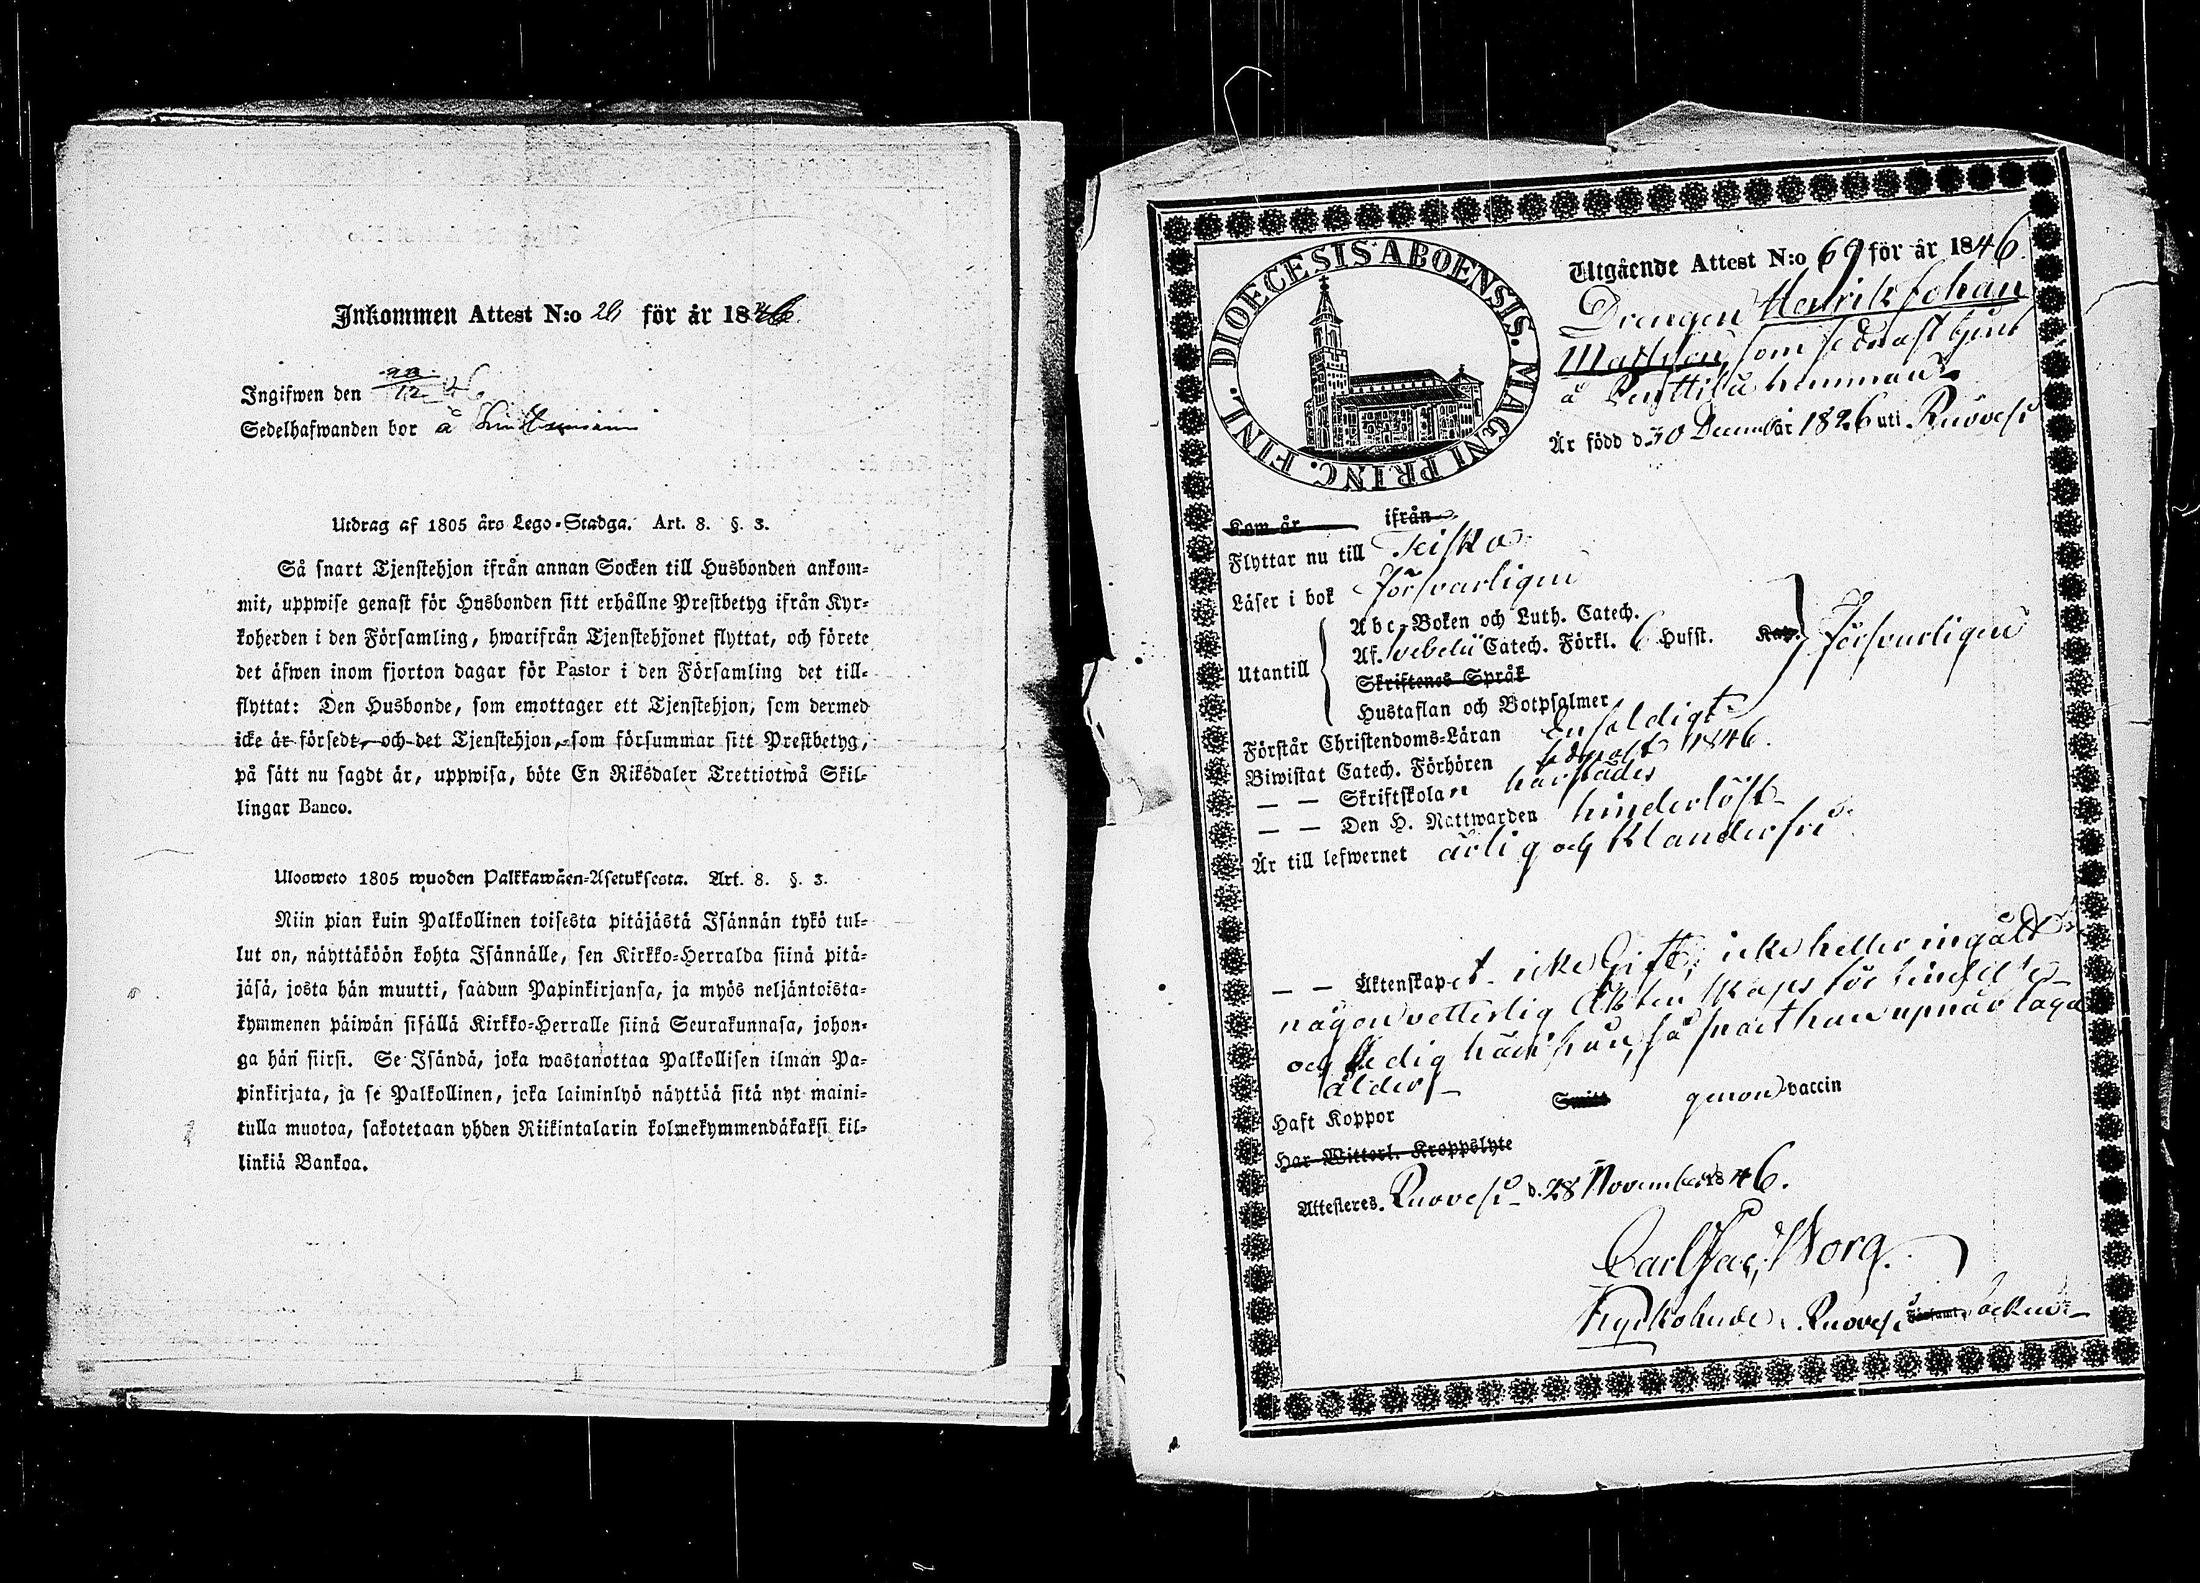 Inkommen Attest N:o 26 för år 1846.
Ingifwen den 12 46
Sedelhafwanden bor å
Utdrag af 1805 års Lego-Stadga. Art. 8. §. 3.
Så snart Tjenstehjon ifrån annan Socken till Husbonden ankom-
mit, uppwise genast för Husbonden sitt erhållne Prestbetyg ifrån Kyr-
koherden i den Församling, hwarifrån Tjenstehjonet flyttat, och förete
det äfwen inom fjorton dagar för Pastor i den Församling det till-
flyttat: Den Husbonde, som emottager ett Tjenstehjon, som dermed
icke är försedt, och det Tjenstehjon, som försummar sitt Prestbetyg,
på sätt nu sagdt är, uppwisa, böte En Riksdaler Trettiotwå Skil-
lingar Banco.
Ulosweto 1805 wuoden Palkkawäen-Asetuksesta. Art. 8. §. 3.
Niin pian kuin Palkollinen toisesta pitäjästä Isännän tykö tul-
lut on, näyttäköön kohta Isännälle, sen Kirkko-Herralda siinä pitä-
jäsä, josta hän muutti, saadun Papinkirjansa, ja myös neljäntoista-
kymmenen päiwän sisällä Kirkko-Herralle siinä Seurakunnasa, johon-
ga hän siirsi. Se Isändä, joka wastanottaa Palkollisen ilman Pa-
pinkirjata, ja se Palkollinen, joka laiminlyö näyttää sitä nyt maini-
tulla muotoa, sakotetaan yhden Riikintalarin kolmekymmendäkaksi kil-
linkiä Bankoa.
DIOECESIS ABOENSIS. MAGNI PRINC. FINL.
Utgående Attest N:o 69 för år 1846.
Drengen Henrik Johan
Mattsson, som sednast tjent
å Penttilä hemman
Är född d. 30 December 1826 uti Ruovesi
Kom år ifrån
Flyttar nu till Teisko
Läser i bok försvarligen
Utantill
Abc-Boken och Luth. Catech.
Af. Svebelii Catech. Förkl. 6 Husst. Kap. Försvarligen
Skriftenes Språk
Hustaflan och Botpsalmer
Förstår Christendoms-Läran enfaldigt
Biwistat Catech. Förhören sednast 1846.
— — Skriftskolan härstädes
— — Den H. Nattwarden hinderlöst
Är till lefwernet ärlig och klanderfri
— — Äktenskapet icke Gift, icke heller ingått
någon vetterlig Äktenskaps förbindelse
och ledig härifrån, så snart han upnår laga
ålder
Haft Koppor Smitt genom vaccin
Har Wittorl. Kroppslyte
Attesteres. Ruovesi d. 28 November 1846.
Carl Jac. Worg.
Kyrkoherde i Ruovesi Församl. Socken